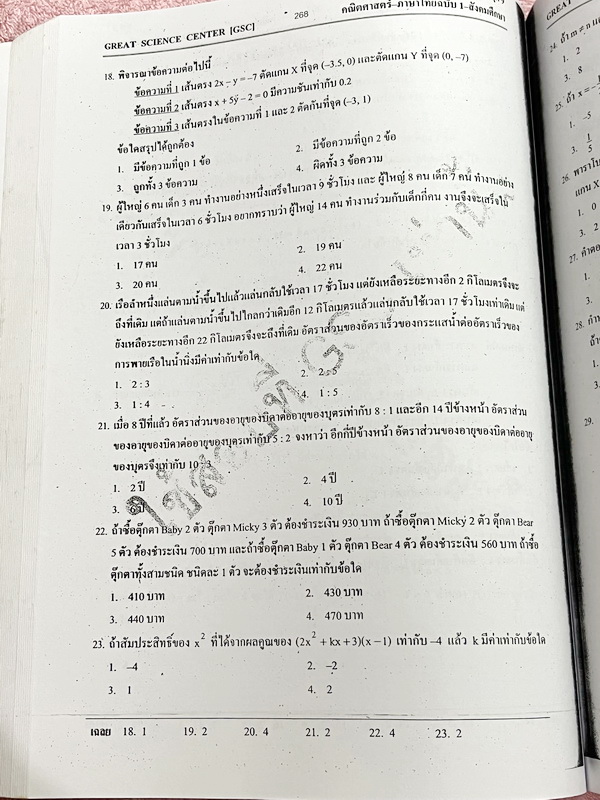 GREAT SCIENCE CENTER [GSC]
268
คณิตศาสตร์-ภาษาไทยฉบับ 1-สังคมศึกษา
18. พิจารณาข้อความต่อไปนี้
ข้อความที่ 1 เส้นตรง 2x – y = –7 ตัดแกน X ที่จุด (–3.5, 0) และตัดแกน Y ที่จุด (0, –7)
ข้อความที่ 2 เส้นตรง x + 5y – 2 = 0 มีความชันเท่ากับ 0.2
ข้อความที่ 3 เส้นตรงในข้อความที่ 1 และ 2 ตัดกันที่จุด (–3, 1)
ข้อใดสรุปได้ถูกต้อง
1. มีข้อความที่ถูก 1 ข้อ
2. มีข้อความที่ถูก 2 ข้อ
3. ถูกทั้ง 3 ข้อความ
4. ผิดทั้ง 3 ข้อความ
19. ผู้ใหญ่ 6 คน เด็ก 3 คน ทำงานอย่างหนึ่งเสร็จในเวลา 9 ชั่วโมง และ ผู้ใหญ่ 8 คน เด็ก 7 คน ทำงานอย่าง
เดียวกันเสร็จในเวลา 6 ชั่วโมง อยากทราบว่า ผู้ใหญ่ 14 คน ทำงานร่วมกับเด็กกี่คน งานจึงจะเสร็จใน
เวลา 3 ชั่วโมง
1. 17 คน
2. 19 คน
3. 20 คน
4. 22 คน
20. เรือลำหนึ่งแล่นตามน้ำขึ้นไปแล้วแล่นกลับใช้เวลา 17 ชั่วโมง แต่ยังเหลือระยะทางอีก 2 กิโลเมตรจึงจะ
ถึงที่เดิม แต่ถ้าแล่นตามน้ำขึ้นไปไกลกว่าเดิมอีก 12 กิโลเมตรแล้วแล่นกลับใช้เวลา 17 ชั่วโมงเท่าเดิม แต่
ยังเหลือระยะทางอีก 22 กิโลเมตรจึงจะถึงที่เดิม อัตราส่วนของอัตราเร็วของกระแสน้ำต่ออัตราเร็วของ
การพายเรือในน้ำนิ่งมีค่าเท่ากับข้อใด
1. 2 : 3
2. 2 : 5
3. 1 : 4
4. 1 : 5
21. เมื่อ 8 ปีที่แล้ว อัตราส่วนของอายุของบิดาต่ออายุของบุตรเท่ากับ 8 : 1 และอีก 14 ปีข้างหน้า อัตราส่วน
ของอายุของบิดาต่ออายุของบุตรเท่ากับ 5 : 2 จงหาว่า อีกกี่ปีข้างหน้า อัตราส่วนของอายุของบิดาต่ออายุ
ของบุตรจึงเท่ากับ 10 : 3
1. 2 ปี
2. 4 ปี
3. 6 ปี
4. 10 ปี
22. ถ้าซื้อตุ๊กตา Baby 2 ตัว ตุ๊กตา Micky 3 ตัว ต้องชำระเงิน 930 บาท ถ้าซื้อตุ๊กตา Micky 2 ตัว ตุ๊กตา Bear
5 ตัว ต้องชำระเงิน 700 บาท และถ้าซื้อตุ๊กตา Baby 1 ตัว ตุ๊กตา Bear 4 ตัว ต้องชำระเงิน 560 บาท ถ้าซื้อ
ตุ๊กตาทั้งสามชนิด ชนิดละ 1 ตัว จะต้องชำระเงินเท่ากับข้อใด
1. 410 บาท
2. 430 บาท
3. 440 บาท
4. 470 บาท
23. ถ้าสัมประสิทธิ์ของ x² ที่ได้จากผลคูณของ (2x² + kx + 3)(x – 1) เท่ากับ –4 แล้ว k มีค่าเท่ากับข้อใด
1. –4
2. –2
3. 1
4. 2
เฉลย 18. 1 19. 2 20. 4 21. 2 22. 4 23. 2
GREAT
24. ถ้า m ≠ n
1. 2
3. 8
25. ถ้า x = –
1. –5
3.
26. พาราโบ
แกน X
1. 0
3. 2
27. คำตอ
28.
29.